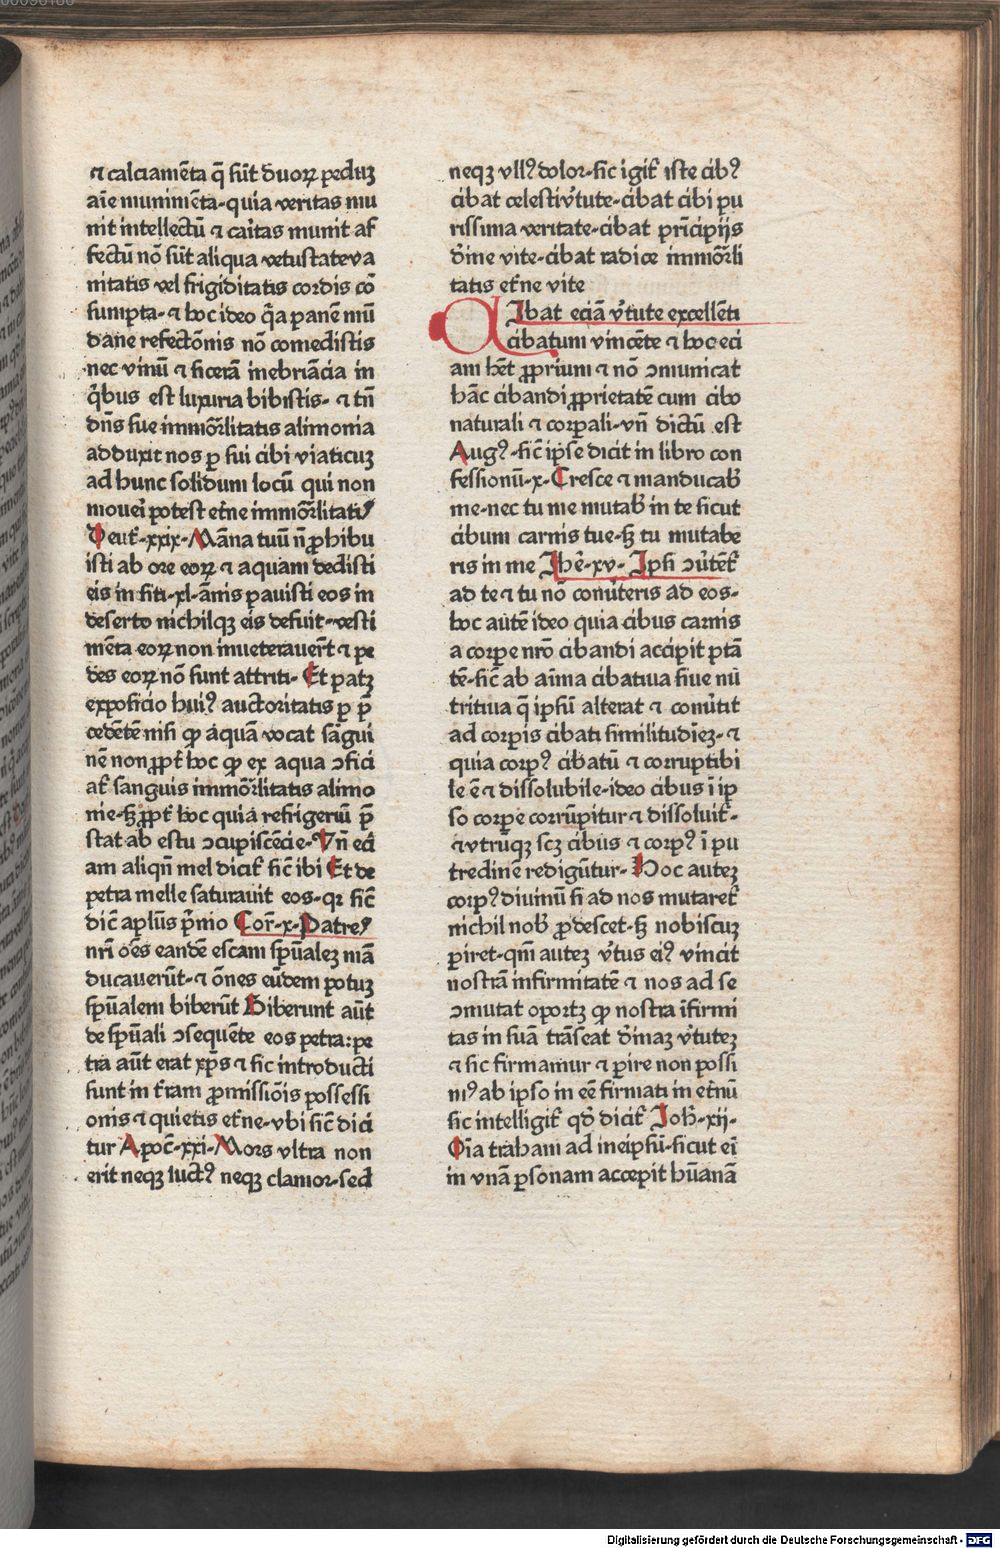 ⁊ calciame̅ta q̅ su̅t duoꝝ pedu̅ꝫ
ai̅e munime̅ta-quia veritas mu
nit intellectu̅ ⁊ caritas munit af
fectu̅ no̅ su̅t aliqua vetustate va
nitatis vel frigiditatis cordis co̅
sumpta-⁊ hoc ideo q̅a pane̅ mu̅
dane refectio̅nis no̅ comedistis
nec vinu̅ ⁊ sicera̅ inebria̅cia in
q̇bus est luxuria bibistis-⁊ tn̅
dn̅s sue immor̅litatis alimonia
adduxit nos ꝑ sui cibi viaticuꝫ
ad hunc solidum locu̅ qui non
moueri potest et̅ne immor̅litatis
Deut̅-xxix-Ma̅na tuu̅ n̅ ꝓhibu
isti ab ore eoꝝ ⁊ aquam dedisti
eis in siti-xl-annis pauisti eos in
deserto nichilqꝫ eis defuit-vesti
me̅ta eoꝝ non inueterauer̅t ⁊ pe
des eoꝝ no̅ sunt attriti-Et patꝫ
exposicio huiꝰ auctoritatis ꝑ p̅
cede̅te̅ nisi qꝫ aqua̅ vocat sa̅gui
ne̅ non ꝓpt̅ hoc qꝫ ex aqua ↄfici
at̅ sanguis immor̅litatis alimo
nie-sꝫ ꝓpt̅ hoc quia refrigeriu̅ p̅
stat ab estu ↄcupisce̅cie-Vn̅ eci
am aliqn̅ mel dicit̅ sic̅ ibi Et de
petra melle saturauit eos-qꝛ sic̅
dic̅ aplu̅s p̅mo Cor̅-x-Patres
nr̅i o̅es eande̅ escam spu̅aleꝫ ma̅
ducaueru̅t-⁊ o̅nes eu̅dem potuꝫ
spu̅alem biberu̅t Biberunt au̅t
de spu̅ali ↄseque̅te eos petra:pe
tra au̅t erat xp̅s ⁊ sic introducti
sunt in t̅ram ꝓmissio̅is possessi
onis ⁊ quietis et̅ne-vbi sic̅ dici
tur Apoc̅-xxi-Mors vltra non
erit neqꝫ luctꝰ neqꝫ clamor-sed
neqꝫ vllꝰ dolor-sic igit̅ iste cibꝰ
cibat celesti v̅tute-cibat cibi pu
rissima veritate-cibat pri̅cipijs
di̅ne vite-cibat radice immor̅li
tatis et̅ne vite
CIbat ecia̅ v̅tute excelle̅ti
cibatum vince̅te ⁊ hoc eci
am h̅et ꝓprium ⁊ no̅ ↄmunicat
ha̅c cibandi ꝓprietate̅ cum cibo
naturali ⁊ corꝑali-vn̅ dictu̅ est
Augꝰ-sic̅ ip̅se dicit in libro con
fessionu̅-x-Cresce ⁊ manducab̅
me-nec tu me mutab̅ in te sicut
cibum carnis tue-sꝫ tu mutabe
ris in me Ihe̅-xv-Ipsi ↄu̅tent̅
ad te ⁊ tu no̅ conu̅teris ad eos-
hoc aute̅ ideo quia cibus carnis
a corꝑe nr̅o cibandi accipit pta̅
te̅-sic̅ ab ai̅ma cibatiua siue nu
tritiua q̅ ipsu̅ alterat ⁊ conu̅tit
ad corꝑis cibati similitudi̅eꝫ-⁊
quia corpꝰ cibatu̅ ⁊ corruptibi
le e̅ ⁊ dissolubile-ideo cibus i̅ ip
so corꝑe corru̅pitur ⁊ dissoluit̅-
⁊ vtru̅qꝫ scꝫ cibus ⁊ corpꝰ i̅ pu
tredine̅ redigu̅tur-Hoc auteꝫ
corpꝰ diuinu̅ si ad nos mutaret̅
nichil nob̅ ꝓdescet-sꝫ nobiscuꝫ
ꝑiret-qm̅ auteꝫ v̅tus eiꝰ vincit
nostra̅ infirmitate̅ ⁊ nos ad se
ↄmutat oportꝫ qꝫ nostra i̅firmi
tas in sua̅ tra̅seat di̅naꝫ v̅tuteꝫ
⁊ sic firmamur ⁊ ꝑire non possi
mꝰ ab ipso in ee̅ firmati in et̅nu̅
sic intelligit̅ qd̅ dicit̅ Joh̅-xij-
Oi̅a traham ad meipsu̅-sicut ei̅
in vna̅ ꝑsonam accepit hu̅ana̅
Digitalisierung gefördert durch die Deutsche Forschungsgemeinschaft - DFG